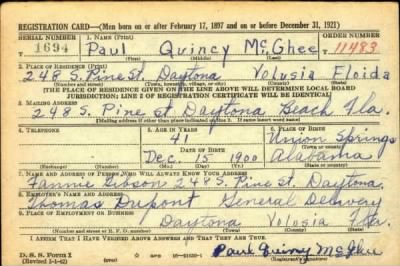 REGISTRATION CARD—(Men born on or after February 17, 1897 and on or before December 31, 1921)
SERIAL NUMBER 1. NAME (Print) ORDER NUMBER
1694 Paul Quincy McGhee T 11483
(First) (Middle) (Last)
2. PLACE OF RESIDENCE (Print)
248 S. Pine St. Daytona Volusia Floida
(Number and street) (Town, township, village, or city) (County) (State)
[THE PLACE OF RESIDENCE GIVEN ON THE LINE ABOVE WILL DETERMINE LOCAL BOARD
JURISDICTION; LINE 2 OF REGISTRATION CERTIFICATE WILL BE IDENTICAL]
3. MAILING ADDRESS
248 S. Pine St. Daytona Beach Fla.
[Mailing address if other than place indicated on line 2. If same insert word same]
4. TELEPHONE 5. AGE IN YEARS 6. PLACE OF BIRTH
41 Union Springs
DATE OF BIRTH (Town or county)
Dec. 15 1900 Alabama
(Exchange) (Number) (Mo.) (Day) (Yr.) (State or country)
7. NAME AND ADDRESS OF PERSON WHO WILL ALWAYS KNOW YOUR ADDRESS
Fannie Gibson 248 S. Pine St. Daytona.
8. EMPLOYER'S NAME AND ADDRESS
Thomas Dupont General Delivery
9. PLACE OF EMPLOYMENT OR BUSINESS
Daytona Volusia Fla.
(Number and street or R. F. D. number) (Town) (County) (State)
I AFFIRM THAT I HAVE VERIFIED ABOVE ANSWERS AND THAT THEY ARE TRUE.
D. S. S. Form 1 Paul Quincy McGhee
(Revised 1-1-42) (over) 16—21630-1